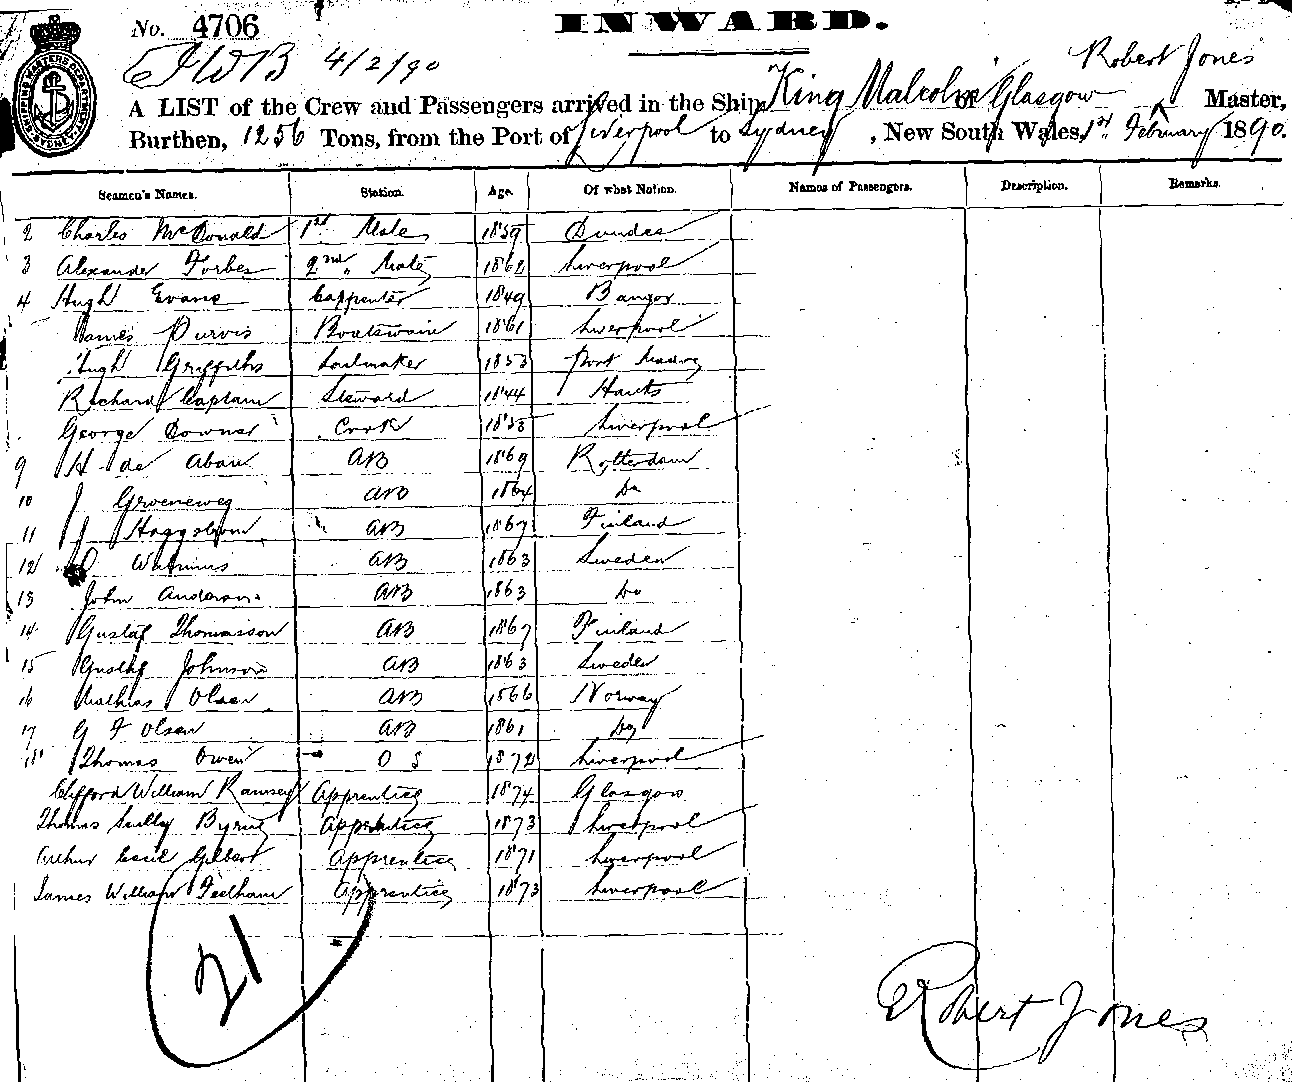 No. 4706
INWARD.
4/2/90
Robert Jones
A LIST of the Crew and Passengers arrived in the Ship King Malcolm of Glasgow Master,
Burthen, 1256 Tons, from the Port of Liverpool to Sydney, New South Wales, 1st February 1890.
Seamen's Names. Station. Age. Of what Nation. Names of Passengers. Description. Remarks.
2 Charles McDonald 1st Mate 1859 Dundee
3 Alexander Forbes 2nd Mate 1862 Liverpool
4 Hugh Evans Carpenter 1849 Bangor
James Purvis Boatswain 1861 Liverpool
Hugh Griffiths Sailmaker 1853 Port Madoc
Richard Captain Steward 1844 Hants
George Downes Cook 1858 Liverpool
9 H de AB 1869 Rotterdam
10 J Groeneweg AB 1864 Do
11 J Haggblom AB 1867 Finland
12 AB 1863 Sweden
13 John Anderson AB 1863 Do
14 Gustaf Thomasson AB 1867 Finland
15 Gustaf Johnson AB 1863 Sweden
16 Mathias Olsen AB 1866 Norway
17 G F Olsen AB 1861 Do
18 Thomas Owen O S 1872 Liverpool
Clifford William Ramsey Apprentice 1874 Glasgow
Thomas Scully Byrne Apprentice 1873 Liverpool
Arthur Cecil Gilbert Apprentice 1871 Liverpool
James William Feltham Apprentice 1873 Liverpool
21
Robert Jones